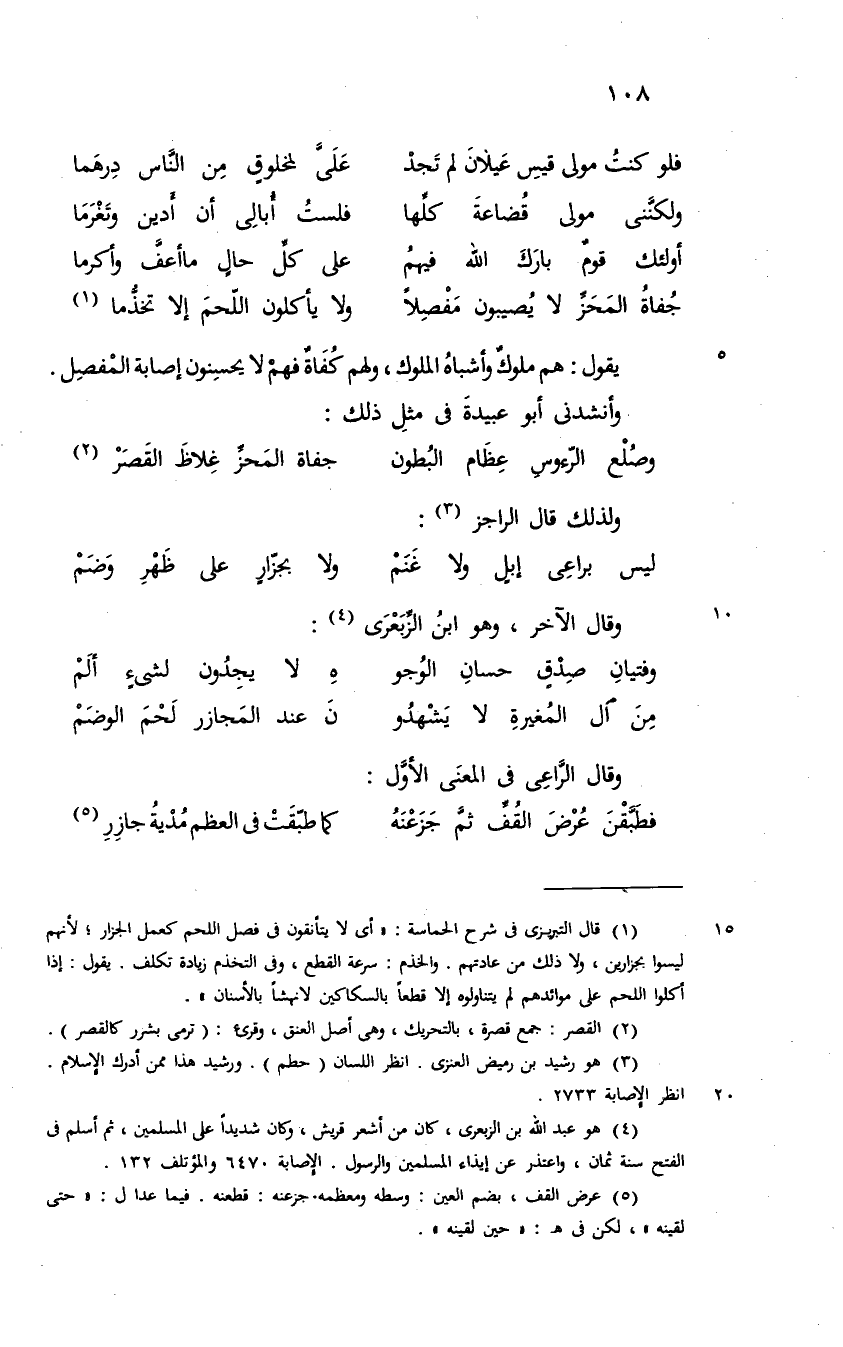 ١٠٨
فلو كنتُ مولى قيسِ عَيلانَ لم تَجدْ عَلَىَّ لمخلوقٍ مِن النَّاس دِرهَما
ولكنَّنى مولى قُضاعةَ كلِّها فلستُ أُبالِى أن أَدين وتَغْرَمَا
أولئك قومٌ بارَكَ الله فيهمُ على كلِّ حالٍ ماأعفَّ وأكرما
جُفاةُ المَحَزِّ لا يُصيبون مَفْصِلاً ولا يأكلون اللّحمَ إلا تخذُّما (١)
٥ يقول : هم ملوكٌ وأشباهُ الملوك ، ولهم كُفَاةٌ فهمْ لا يحسِنون إصابة المْفصِل .
وأنشدنى أبو عبيدةَ فى مثلِ ذلك :
وصُلْع الرّءوسِ عِظَام البُطون جفاة المَحزِّ غِلاظَ القَصَرْ (٢)
ولذلك قال الراجز (٣) :
ليس براعِى إبلٍ ولا غَنَمْ ولا بجزّارٍ على ظَهْرِ وَضَمْ
١٠ وقال الآخر ، وهو ابنُ الزِّبَعْرَى (٤) :
وفتيانِ صِدْقٍ حسانِ الوُجو هِ لا يجِدُون لشىءٍ ألَمْ
مِنَ آل المُغيرةِ لا يَشْهدُو نَ عند المَجازر لَحْمَ الوضَمْ
وقال الرَّاعِى فى المعنَى الأوَّل :
فطَبَّقْنَ عُرْضَ القُفِّ ثمَّ جَزَعْنَهُ كما طبّقَتْ فى العظم مُدْيةُ جازِرِ (٥)
١٥ (١) قال التبريزى فى شرح الحماسة : « أى لا يتأنقون فى فصل اللحم كعمل الجزار ؛ لأنهم
ليسوا بجزارين ، ولا ذلك من عادتهم . والخذم : سرعة القطع ، وفى التخذم زيادة تكلف . يقول : إذا
أكلوا اللحم على موائدهم لم يتناولوه إلا قطعاً بالسكاكين لانهشاً بالأسنان » .
(٢) القصر : جمع قصرة ، بالتحريك ، وهى أصل العنق ، وقرئ : ( ترمى بشرر كالقصر ) .
(٣) هو رشيد بن رميض العنزى . انظر اللسان ( حطم ) . ورشيد هذا ممن أدرك الإسلام .
٢٠ انظر الإصابة ٢٧٣٣ .
(٤) هو عبد الله بن الزبعرى ، كان من أشعر قريش ، وكان شديداً على المسلمين ، ثم أسلم فى
الفتح سنة ثمان ، واعتذر عن إيذاء المسلمين والرسول . الإصابة ٦٤٧٠ والمؤتلف ١٣٢ .
(٥) عرض القف ، بضم العين : وسطه ومعظمه. جزعنه : قطعنه . فيما عدا ل : « حتى
لقينه » ، لكن فى هـ : « حين لقينه » .